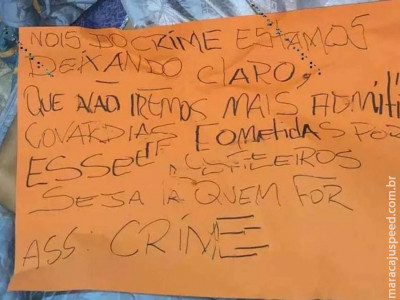 NOIS DO CRIME ESTAMOS
DEIXANDO CLARO,
QUE NÃO IREMOS MAIS ADMITI
COVARDIAS COMETIDAS POR
ESSE
SEJA LÁ QUEM FOR
ASS: CRIME
maracajuspeed.com.br